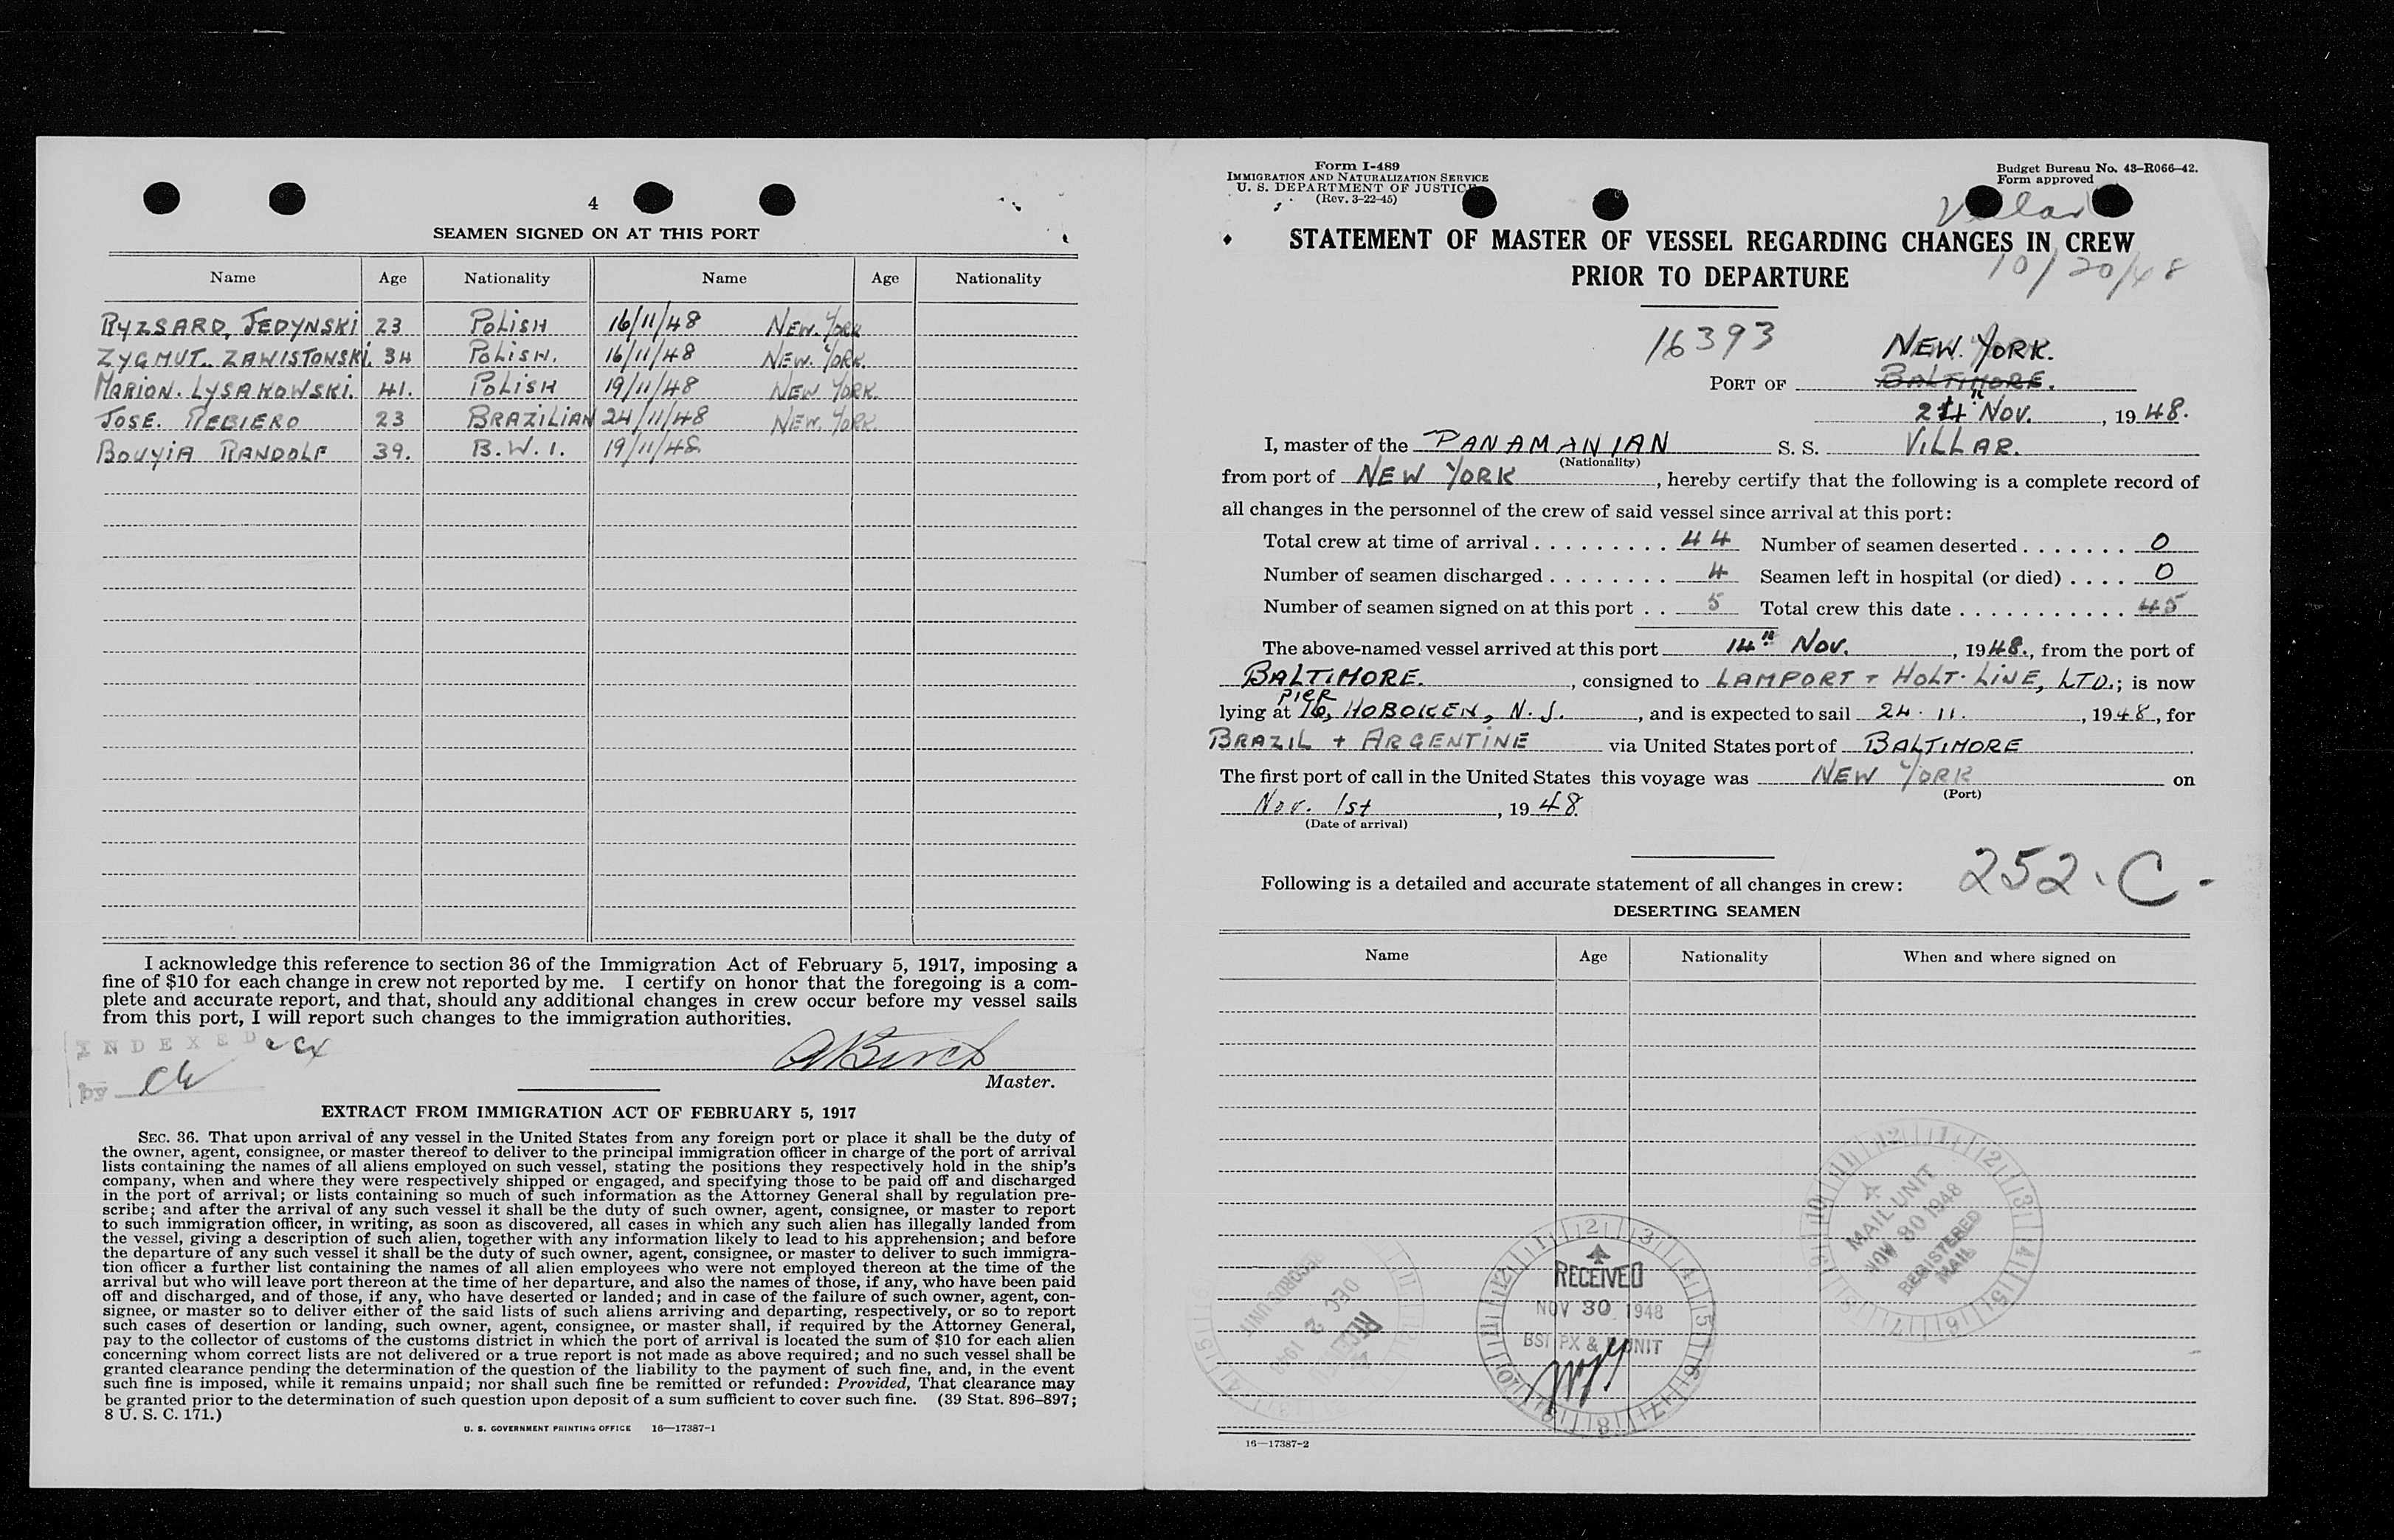 4
SEAMEN SIGNED ON AT THIS PORT
Name Age Nationality Name Age Nationality
RYZSARD, JEDYNSKI 23 POLISH 16/11/48 NEW. YORK
ZYGMUT. ZAWISTOWSKI. 34 POLISH. 16/11/48 NEW. YORK.
MARION. LYSAKOWSKI. 41. POLISH 19/11/48 NEW YORK.
JOSE. REBIERO 23 BRAZILIAN 24/11/48 NEW. YORK.
BOUYIA RANDOLF 39. B.W.I. 19/11/48
I acknowledge this reference to section 36 of the Immigration Act of February 5, 1917, imposing a
fine of $10 for each change in crew not reported by me. I certify on honor that the foregoing is a com-
plete and accurate report, and that, should any additional changes in crew occur before my vessel sails
from this port, I will report such changes to the immigration authorities.
INDEXED
by
Master.
EXTRACT FROM IMMIGRATION ACT OF FEBRUARY 5, 1917
SEC. 36. That upon arrival of any vessel in the United States from any foreign port or place it shall be the duty of
the owner, agent, consignee, or master thereof to deliver to the principal immigration officer in charge of the port of arrival
lists containing the names of all aliens employed on such vessel, stating the positions they respectively hold in the ship's
company, when and where they were respectively shipped or engaged, and specifying those to be paid off and discharged
in the port of arrival; or lists containing so much of such information as the Attorney General shall by regulation pre-
scribe; and after the arrival of any such vessel it shall be the duty of such owner, agent, consignee, or master to report
to such immigration officer, in writing, as soon as discovered, all cases in which any such alien has illegally landed from
the vessel, giving a description of such alien, together with any information likely to lead to his apprehension; and before
the departure of any such vessel it shall be the duty of such owner, agent, consignee, or master to deliver to such immigra-
tion officer a further list containing the names of all alien employees who were not employed thereon at the time of the
arrival but who will leave port thereon at the time of her departure, and also the names of those, if any, who have been paid
off and discharged, and of those, if any, who have deserted or landed; and in case of the failure of such owner, agent, con-
signee, or master so to deliver either of the said lists of such aliens arriving and departing, respectively, or so to report
such cases of desertion or landing, such owner, agent, consignee, or master shall, if required by the Attorney General,
pay to the collector of customs of the customs district in which the port of arrival is located the sum of $10 for each alien
concerning whom correct lists are not delivered or a true report is not made as above required; and no such vessel shall be
granted clearance pending the determination of the question of the liability to the payment of such fine, and, in the event
such fine is imposed, while it remains unpaid; nor shall such fine be remitted or refunded: Provided, That clearance may
be granted prior to the determination of such question upon deposit of a sum sufficient to cover such fine. (39 Stat. 896–897;
8 U. S. C. 171.)
U. S. GOVERNMENT PRINTING OFFICE 16—17387-1
Form I-489
IMMIGRATION AND NATURALIZATION SERVICE
U. S. DEPARTMENT OF JUSTICE
(Rev. 3-22-45)
Budget Bureau No. 43-R066-42.
Form approved
Villar
STATEMENT OF MASTER OF VESSEL REGARDING CHANGES IN CREW
PRIOR TO DEPARTURE
10/20/48
16393
NEW. YORK.
PORT OF BALTIMORE.
24 Nov., 1948.
I, master of the PANAMANIAN S. S. VILLAR.
(Nationality)
from port of NEW YORK, hereby certify that the following is a complete record of
all changes in the personnel of the crew of said vessel since arrival at this port:
Total crew at time of arrival . . . . . . . . . 44 Number of seamen deserted . . . . . . . 0
Number of seamen discharged . . . . . . . . 4 Seamen left in hospital (or died) . . . . 0
Number of seamen signed on at this port . . 5 Total crew this date . . . . . . . . . . . 45
The above-named vessel arrived at this port 14th Nov., 1948., from the port of
BALTIMORE., consigned to LAMPORT + HOLT. LINE, LTD.; is now
lying at PIER 16, HOBOKEN, N. J., and is expected to sail 24. 11., 1948, for
BRAZIL + ARGENTINE via United States port of BALTIMORE
The first port of call in the United States this voyage was NEW YORK on
(Port)
Nov. 1st, 1948
(Date of arrival)
Following is a detailed and accurate statement of all changes in crew:
252. C -
DESERTING SEAMEN
Name Age Nationality When and where signed on
MAIL UNIT
NOV 30 1948
REGISTERED
MAIL
RECEIVED
NOV 30 1948
BSI PX & UNIT
RECORDS UNIT
DEC 2
RECEIVED
16—17387-2